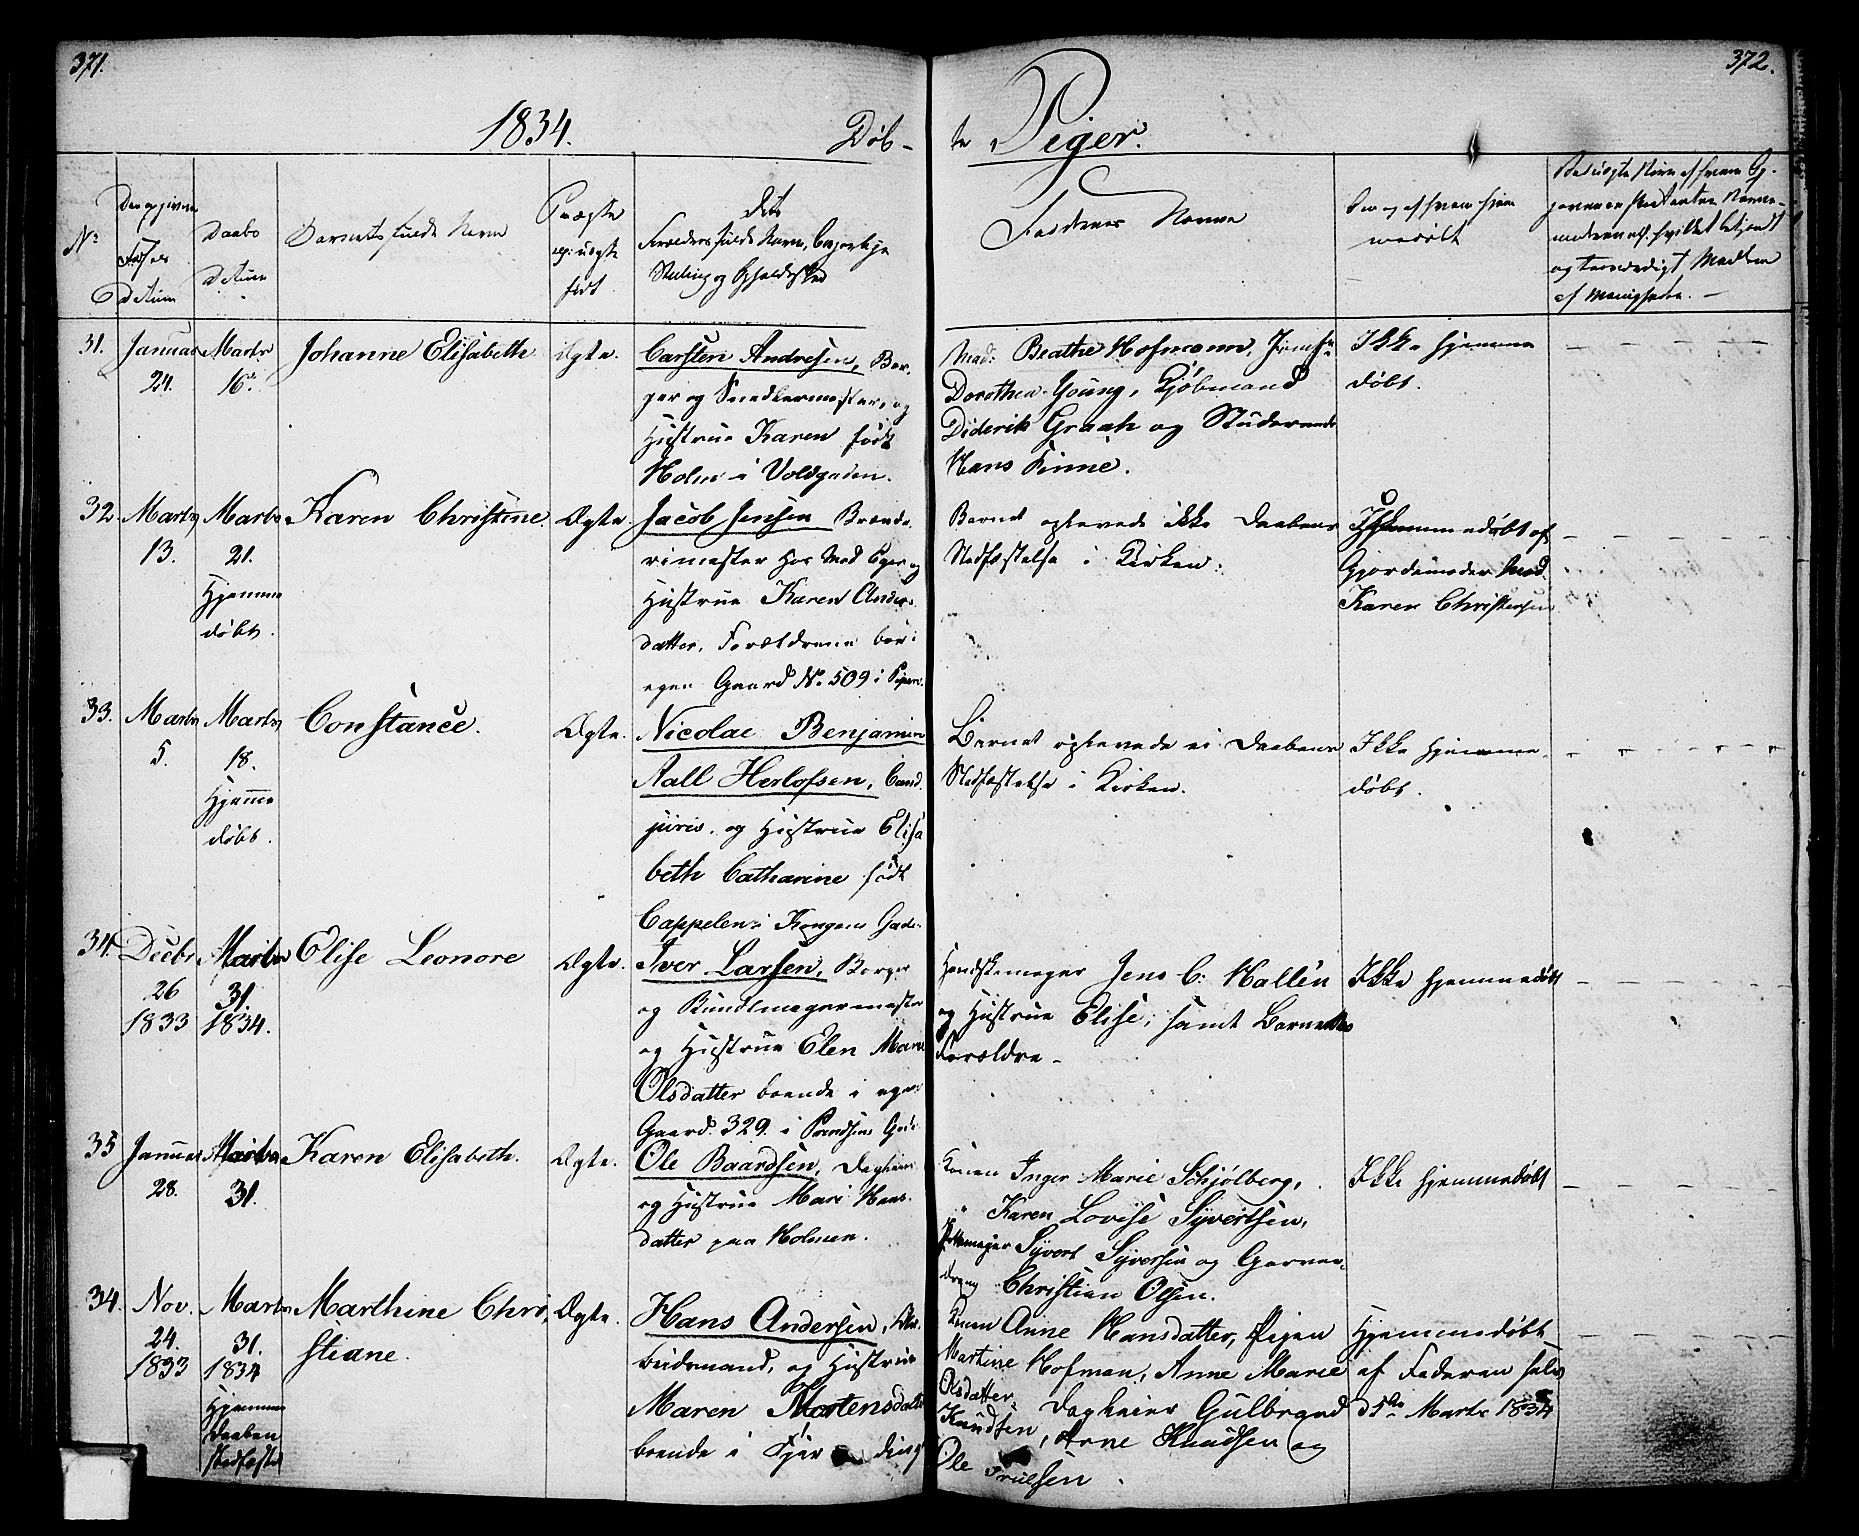 371.
372.
1834.
Døb-
te Piger.
No
Fødsels
Datum
Daabs
Datum
Barnets fulde Navn
Uægte
født
Forældres fulde Navn, Borgerlige
Stilling og
Faddernes Navne
medøbt
af Menigheden.
31.
Januar
24.
Marts
16de
Johanne Elisabeth
Ægte.
Carsten Andresen, Bor-
ger og Snedkermester, og
Hustrue Karen født
Holm i Voldgaden.
Mad: Beathe Hofmann, Jomfr
Dorothea Young, Kjøbmand
Diderik Graah og Studerende
Hans Finne.
Ikke hjemme
døbt.
32.
Marts
13.
Marts
21.
Hjemme
døbt.
Karen Christine
Ægte.
Jacob Jensen Brænde-
rimester hos Mad og
Hustrue Karen Anders-
datter, Forældrene boe i
egen Gaard No 509 i
Barnet oplevede ikke Daabens
Stadfæstelse i Kirken.
Hjemmedøbt af
Gjordemoder Mad.
Karen Christensen
33.
Marts
5.
Marts
18.
Hjemme
døbt.
Constance.
Ægte.
Nicolai Benjamin
Aall Herlofsen, Cand
juris. og Hustrue Elisa
beth Catharine født
Cappelen i Kongens Gade
Barnet oplevede ei Daabens
Stadfæstelse i Kirken.
Ikke hjemme
døbt.
34.
Decbr
26
1833
Marts
31.
1834.
Elise Leonore
Ægte.
Iver Larsen, Borger
og Bundtmagermester
og Hustrue Elen Marie
Olsdatter boende i egen
Gaard 329. i Prindsens Gade
Handskemager Jens C: Hallén
og Hustrue Elise, samt Barnets
Forældre
Ikke hjemmedøbt
35
Januar
28.
Marts
31.
Karen Elisabeth.
Ægte.
Ole Baardsen, Dagleier
og Hustrue Mari Hans-
datter paa Holmen.
Konen Inger Marie Schjølberg,
" Karen Lovise Syvertsen,
Syvert Syversen og Garver
Christian Olsen.
Ikke hjemmedøbt
34.
Nov.
24.
1833
Marts
31.
1834
Hjemme
Daaben
stadfæstet
Marthine Chri
stiane.
Ægte.
Hans Andersen,
og Hustrue
Maren Mortensdatter
boende i
Konen Anne Hansdatter, Pigen
Martine Hofman, Anne Marie
Olsdatter. Dagleier Gulbrand
Knudsen, Arne Knudsen og
Ole Truelsen.
Hjemmedøbt
af Faderen selv
d 5te Marts 1834